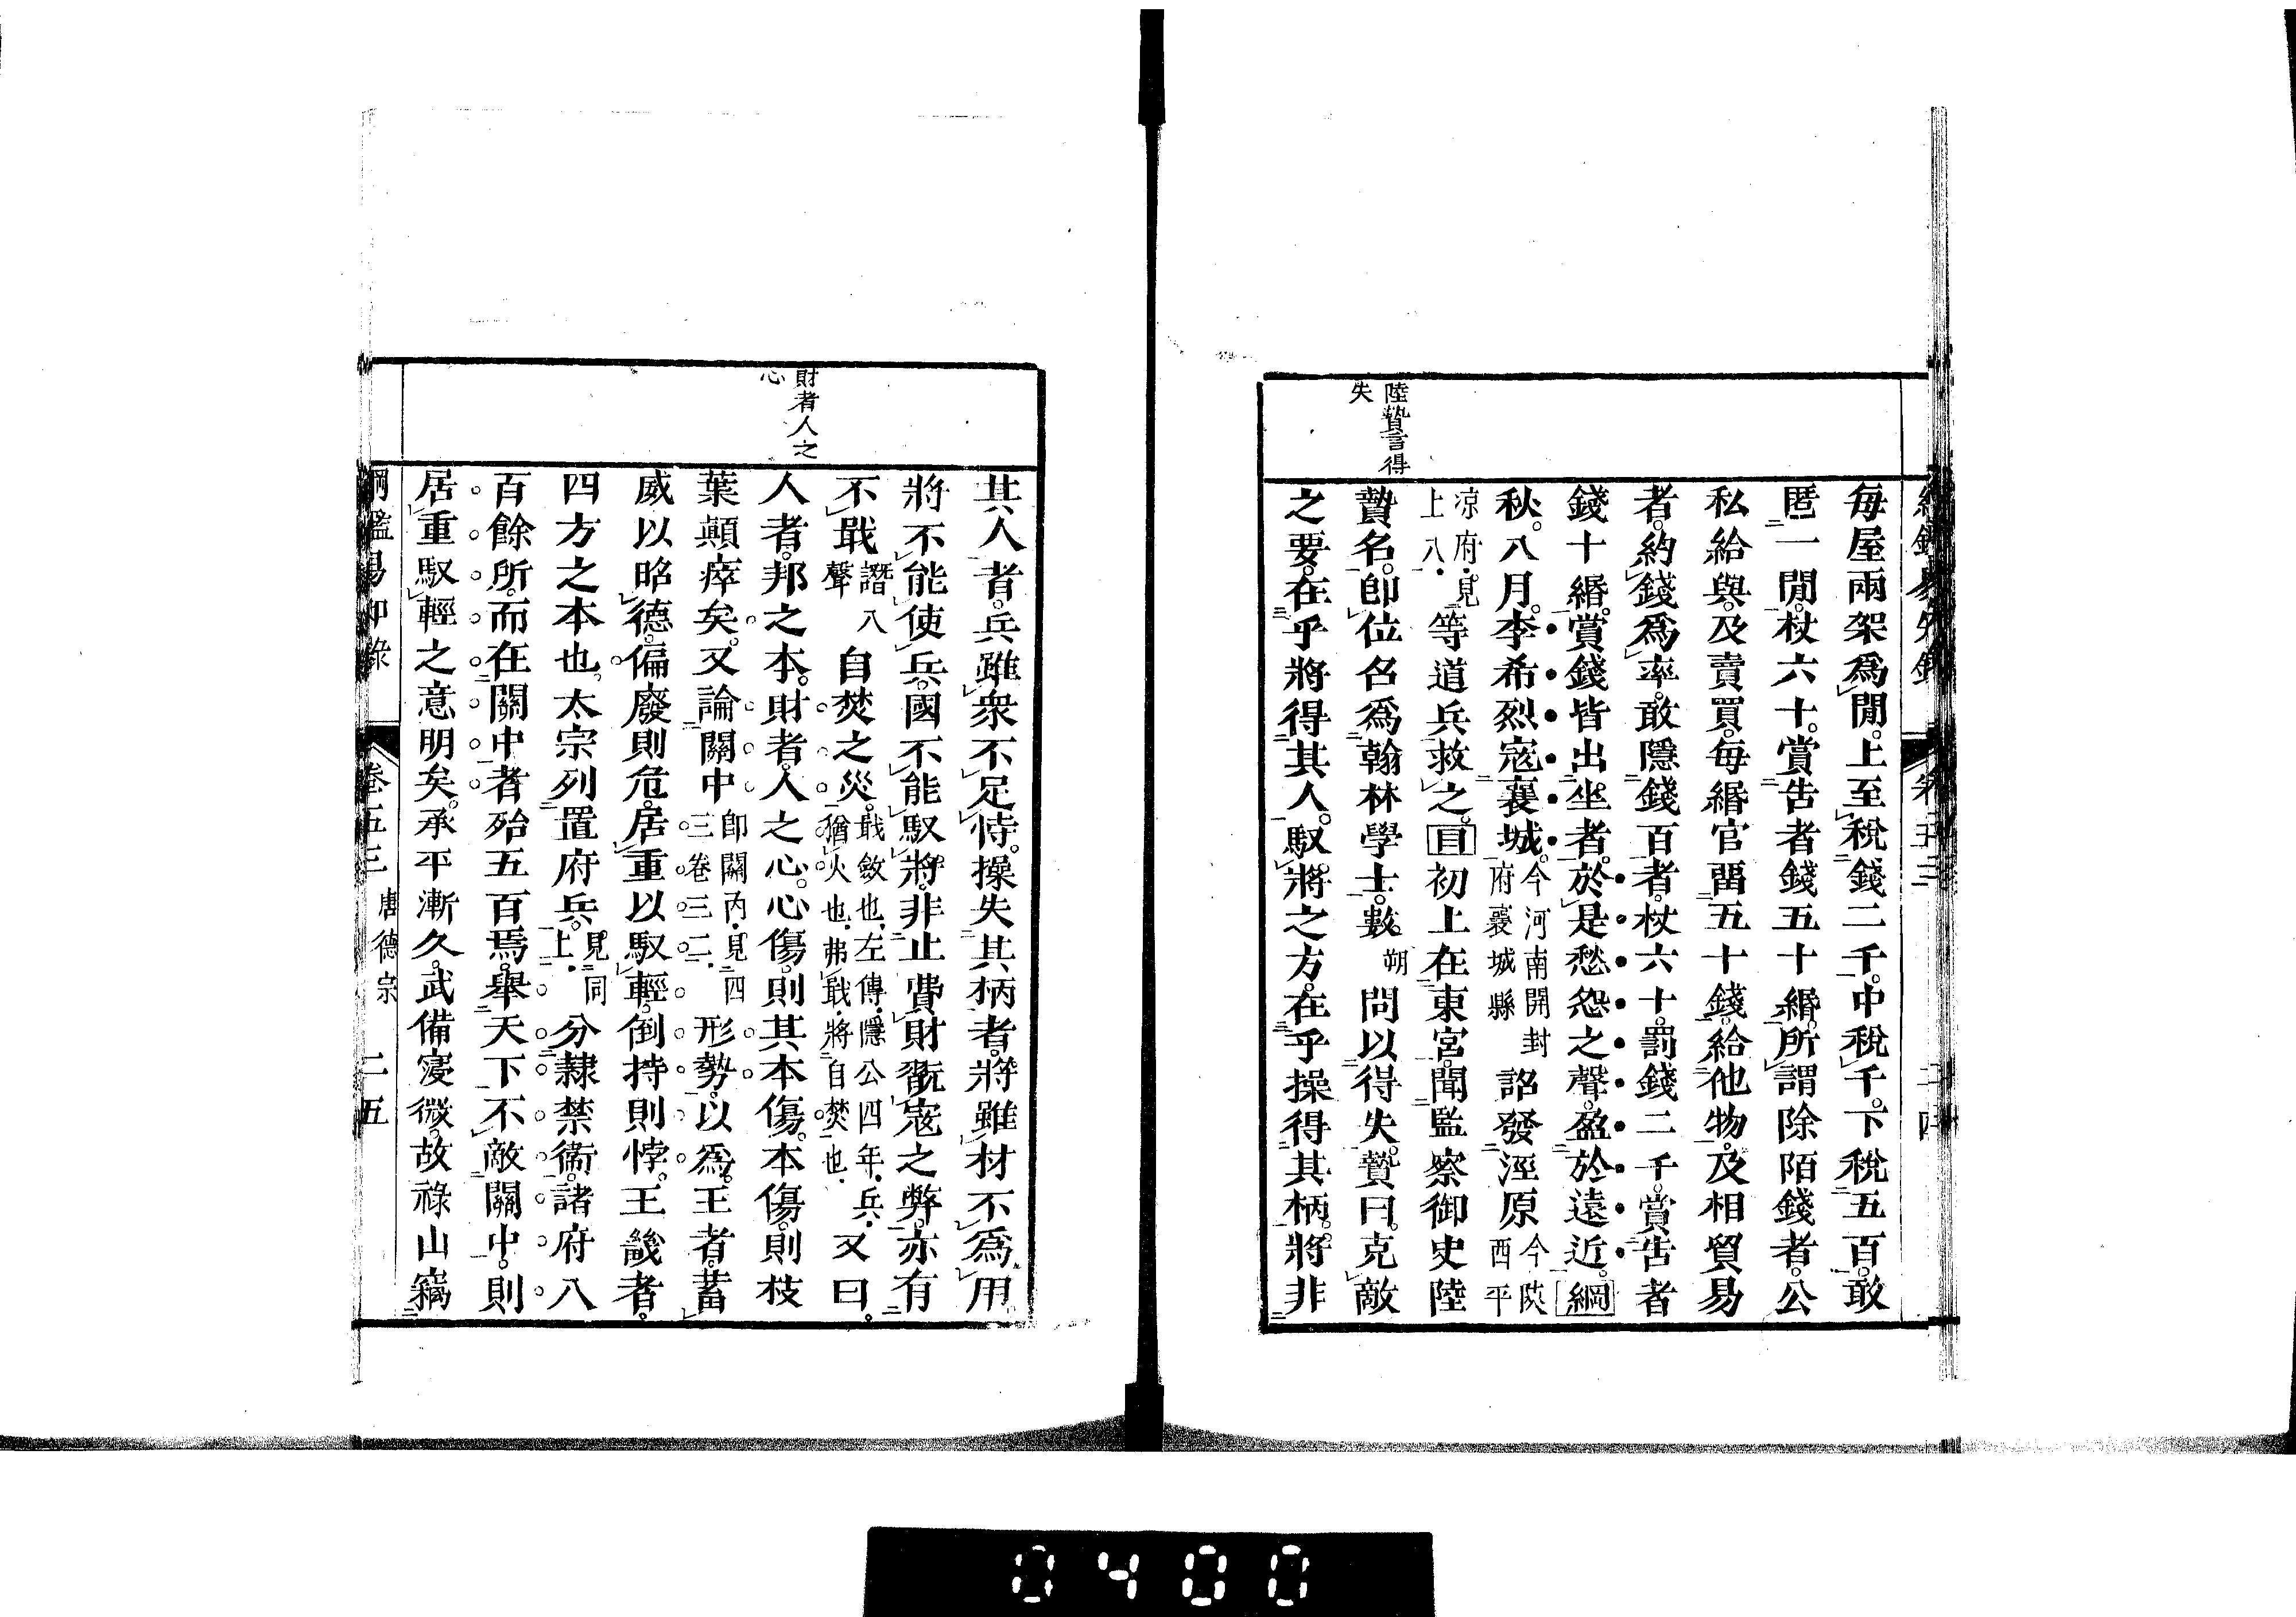 陸贄言得
失
每屋兩架爲閒。上至稅錢二千。中稅千。下稅五百。敢
匿一閒。杖六十。賞吿者錢五十緡。所謂除陌錢者。公
私給與。及賣買。每緡官留五十錢。給他物。及相貿易
者。約錢爲率。敢隱錢百者。杖六十。罰錢二千。賞吿者
錢十緡。賞錢皆出坐者。於是愁怨之聲。盈於遠近。綱
秋。八月。李希烈寇襄城。今河南開封府襄城縣詔發涇原今陝西平
涼府。見上八。等道兵救之。目初上在東宮。聞監察御史陸
贄名。卽位名爲翰林學士。數朔問以得失。贄曰。克敵
之要。在乎將得其人。馭將之方。在乎操得其柄。將非
財者人之
心
其人者。兵雖衆不足恃。操失其柄者。將雖材不爲用。
將不能使兵。國不能馭將。非止費財翫寇之弊。亦有
不戢譖入聲自焚之災。戢斂也。左傳。隱公四年。兵。猶火也。弗戢。將自焚也。又曰。
人者。邦之本。財者。人之心。心傷。則其本傷。本傷。則枝
葉顚瘁矣。又論關中卽關內。見四三卷三二。形勢。以爲。王者。蓄
威以昭德。偏廢則危。居重以馭輕。倒持則悖。王畿者。
四方之本也。太宗列置府兵。見同上。分隸禁衞。諸府八
百餘所。而在關中者殆五百焉。舉天下不敵關中。則
居重馭輕之意明矣。承平漸久。武備寖微。故祿山竊
綱鑑易知錄 卷五三 唐德宗 二五
0400